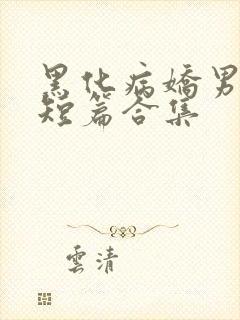 黑化病嬌男
短篇合集
雲清